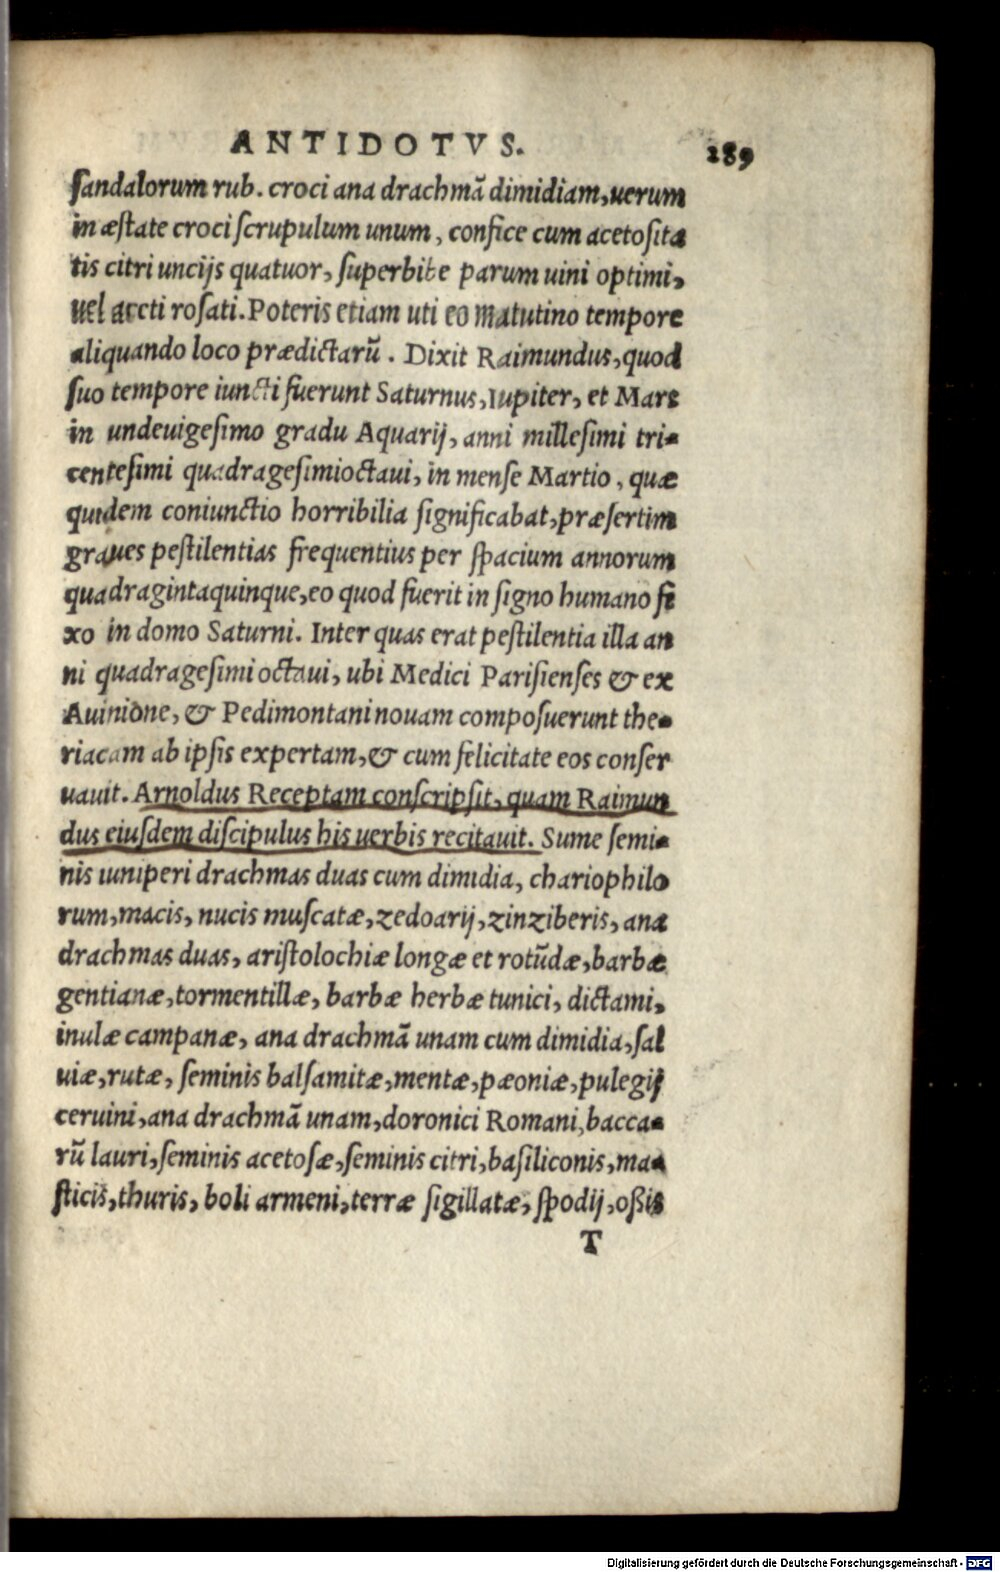 ANTIDOTVS. 189
sandalorum rub. croci ana drachmā dimidiam, uerum
in æstate croci scrupulum unum, confice cum acetosita
tis citri uncijs quatuor, superbibe parum uini optimi,
uel aceti rosati. Poteris etiam uti eo matutino tempore
aliquando loco prædictarū. Dixit Raimundus, quod
suo tempore iuncti fuerunt Saturnus, Iupiter, et Mars
in undeuigesimo gradu Aquarij, anni millesimi tri-
centesimi quadragesimioctaui, in mense Martio, quæ
quidem coniunctio horribilia significabat, præsertim
graues pestilentias frequentius per spacium annorum
quadragintaquinque, eo quod fuerit in signo humano fi
xo in domo Saturni. Inter quas erat pestilentia illa an
ni quadragesimi octaui, ubi Medici Parisienses & ex
Auinione, & Pedimontani nouam composuerunt the-
riacam ab ipsis expertam, & cum felicitate eos conser
uauit. Arnoldus Receptam conscripsit, quam Raimun
dus eiusdem discipulus his uerbis recitauit. Sume semi-
nis iuniperi drachmas duas cum dimidia, chariophilo
rum, macis, nucis muscatæ, zedoarij, zinziberis, ana
drachmas duas, aristolochiæ longæ et rotūdæ, barbæ
gentianæ, tormentillæ, barbæ herbæ tunici, dictami,
inulæ campanæ, ana drachmā unam cum dimidia, sal
uiæ, rutæ, seminis balsamitæ, mentæ, pæoniæ, pulegij
ceruini, ana drachmā unam, doronici Romani, bacca-
rū lauri, seminis acetosæ, seminis citri, basiliconis, ma-
sticis, thuris, boli armeni, terræ sigillatæ, spodij, oßis
T
Digitalisierung gefördert durch die Deutsche Forschungsgemeinschaft - DFG